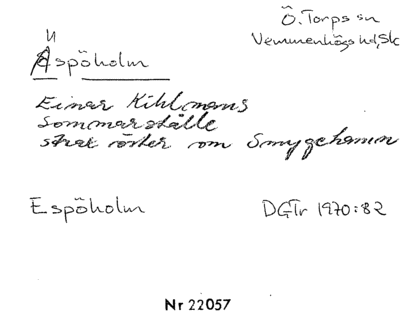 Ö. Torps sn
Vemmenhögs hd, Sk
Äspöholm
Einar Kihlmans
sommarställe
strax öster om Smygehamn
Espöholm
DGTr 1970:82
Nr 22057